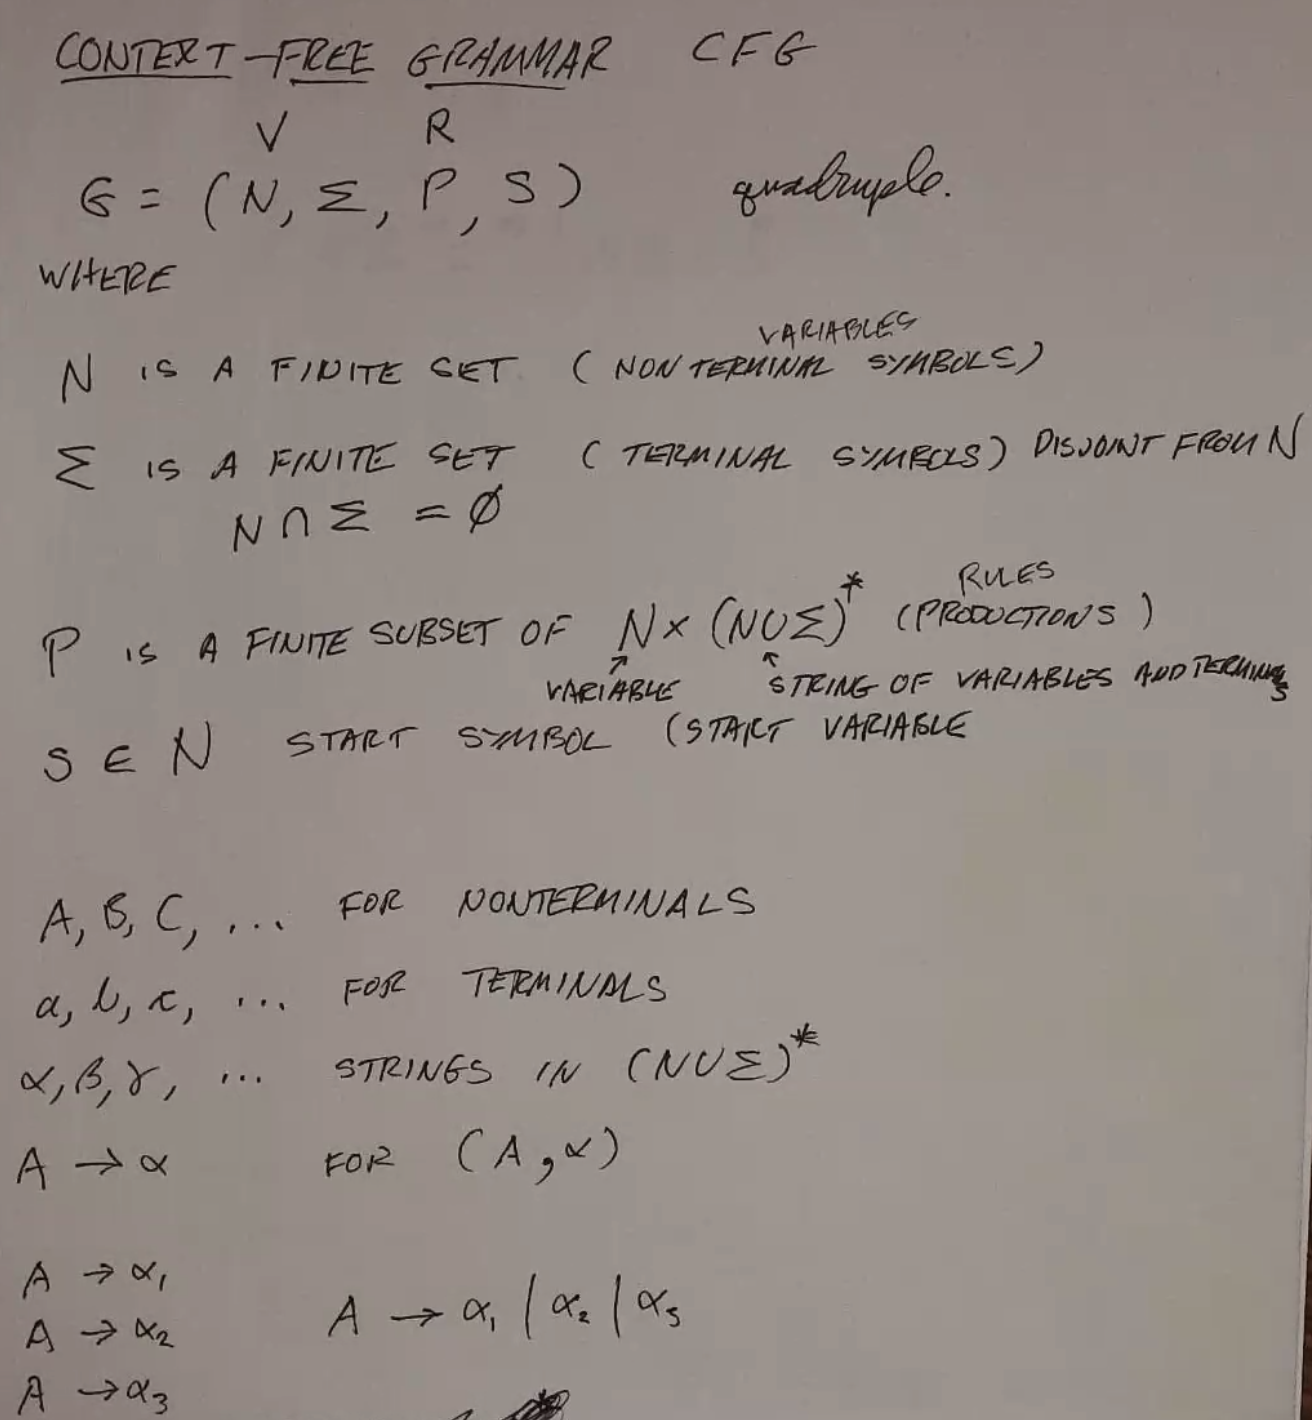 CONTEXT-FREE GRAMMAR CFG
V R
G = (N, Σ, P, S) quadruple.
WHERE
VARIABLES
N IS A FINITE SET (NONTERMINAL SYMBOLS)
Σ IS A FINITE SET (TERMINAL SYMBOLS) DISJOINT FROM N
N ∩ Σ = Ø
RULES
P IS A FINITE SUBSET OF N × (N∪Σ)* (PRODUCTIONS)
↗ ↖
VARIABLE STRING OF VARIABLES AND TERMINALS
S ∈ N START SYMBOL (START VARIABLE
A, B, C, ... FOR NONTERMINALS
a, b, c, ... FOR TERMINALS
α, β, γ, ... STRINGS IN (N∪Σ)*
A → α FOR (A, α)
A → α₁
A → α₂ A → α₁ | α₂ | α₃
A → α₃